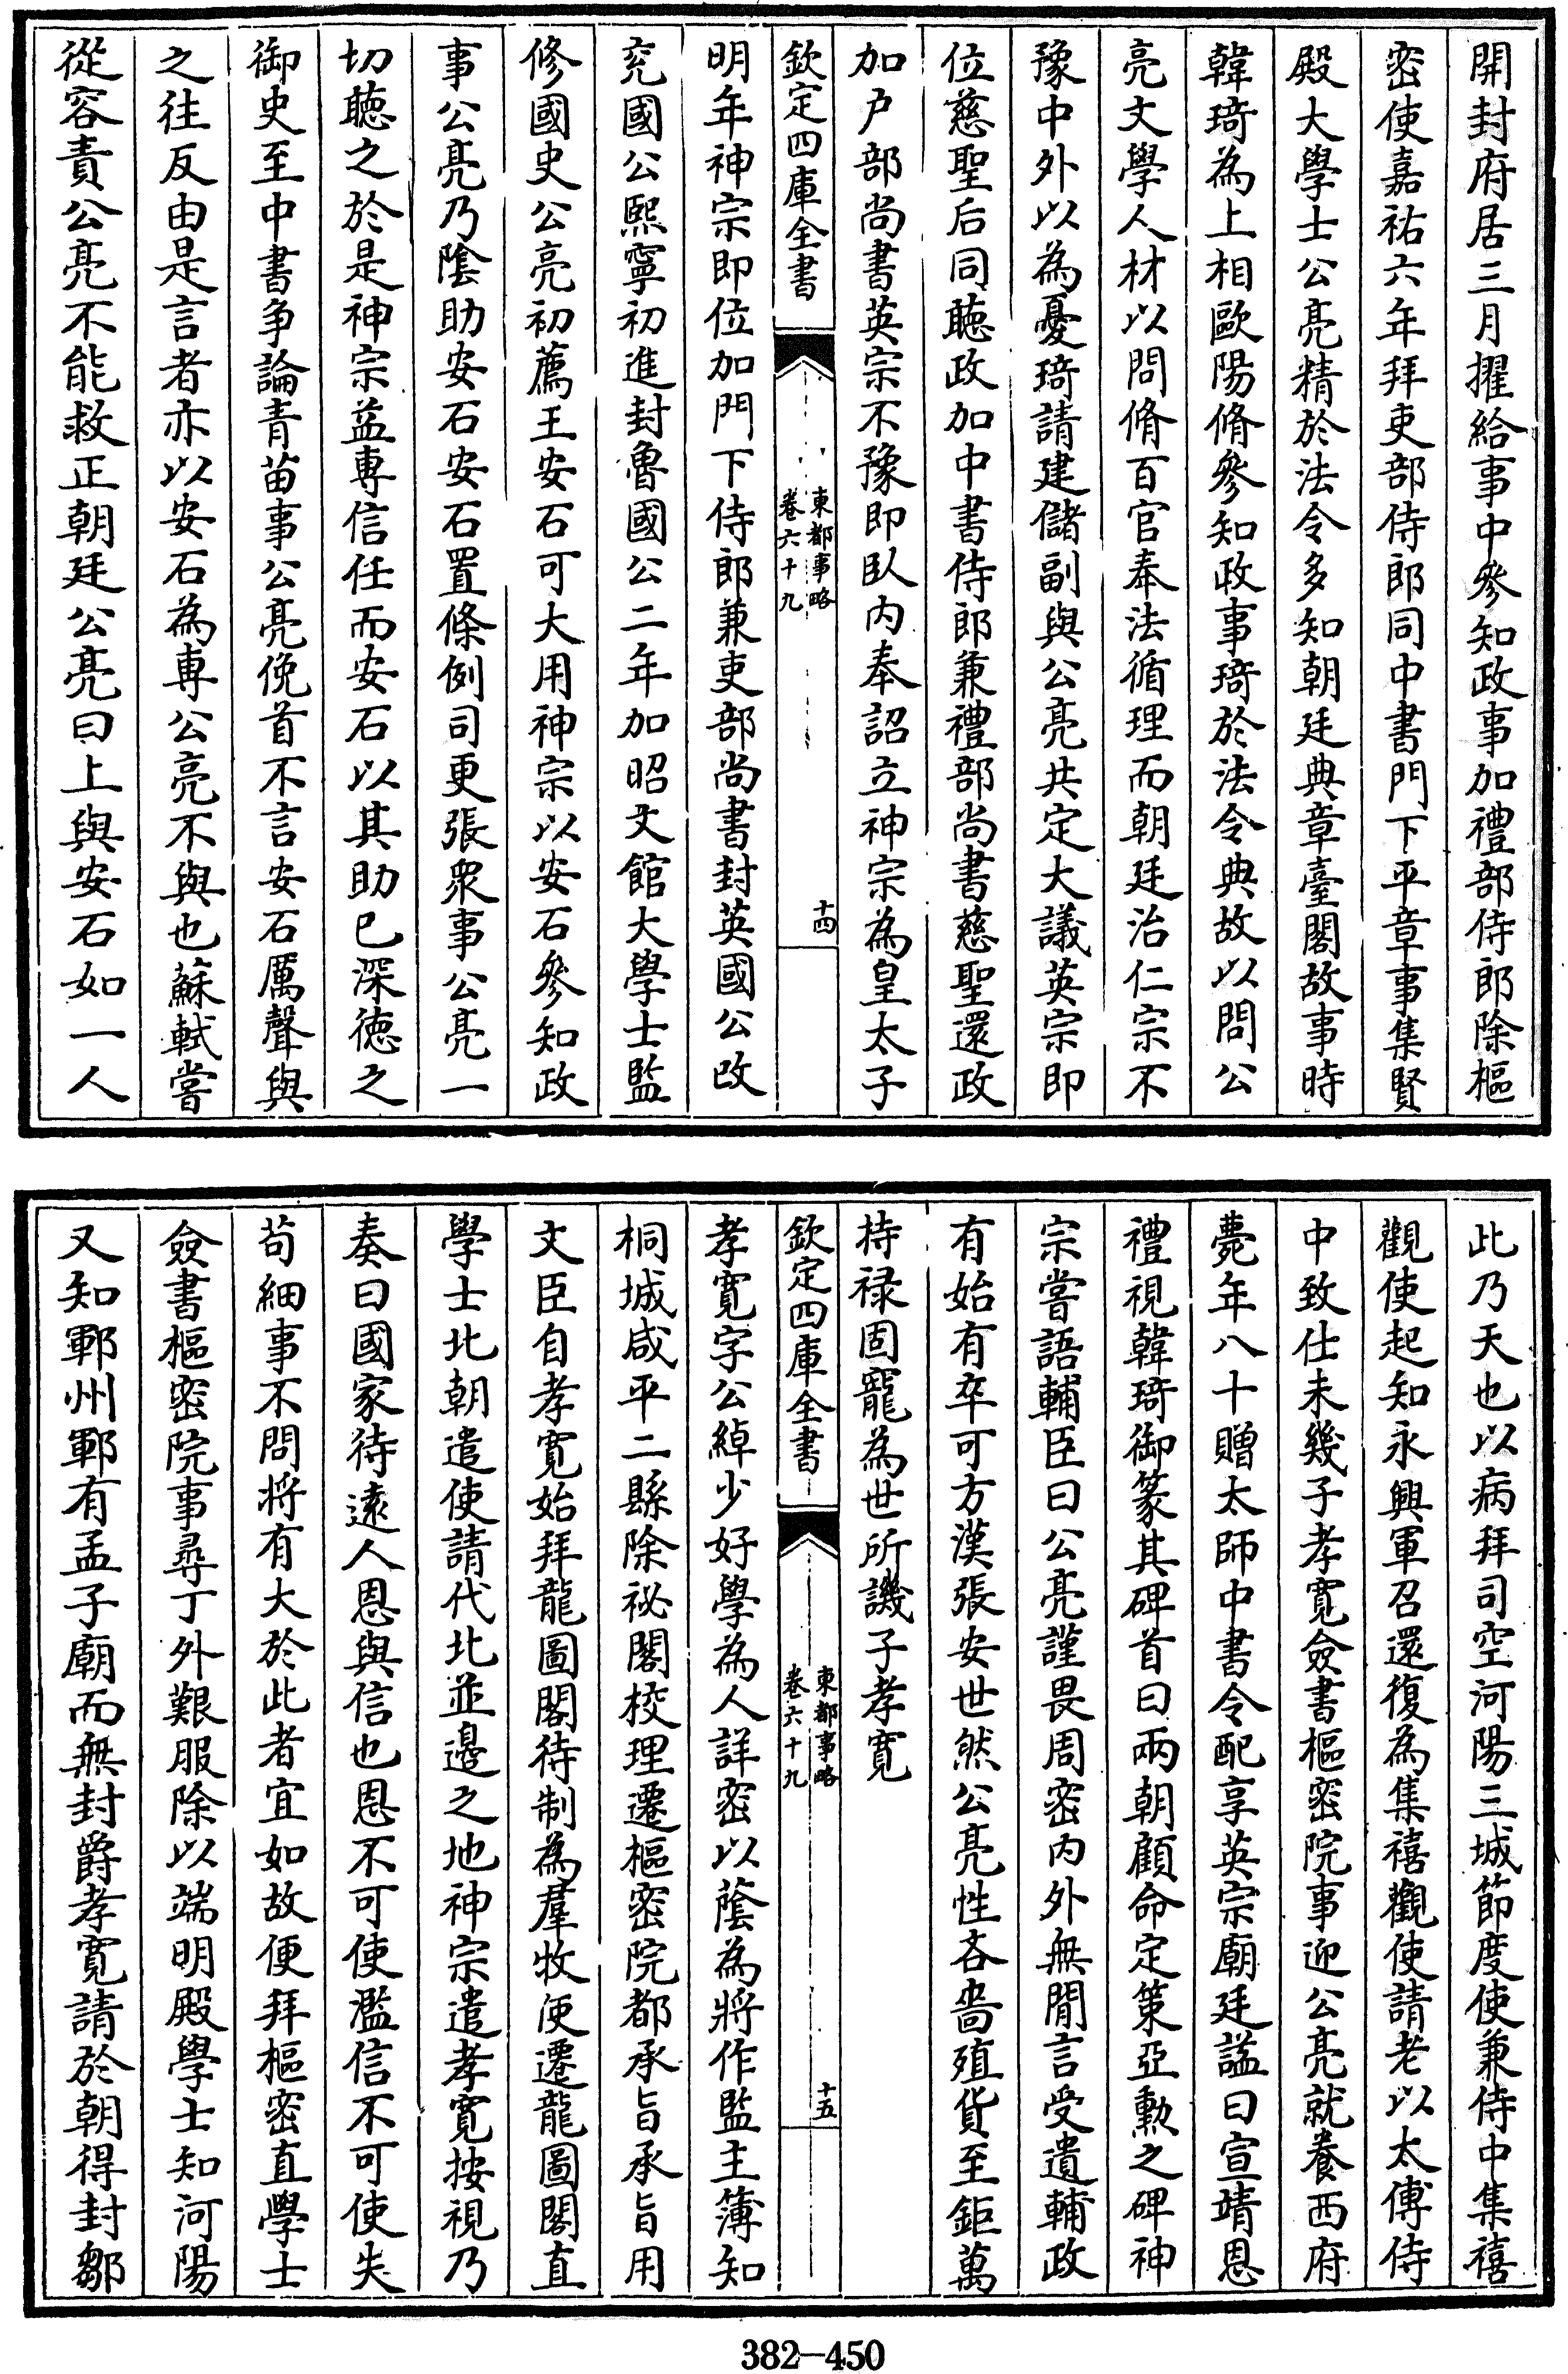 開封府居三月擢給事中參知政事加禮部侍郎除樞
密使嘉祐六年拜吏部侍郎同中書門下平章事集賢
殿大學士公亮精於法令多知朝廷典章臺閣故事時
韓琦為上相歐陽脩參知政事琦於法令典故以問公
亮文學人材以問脩百官奉法循理而朝廷治仁宗不
豫中外以為憂琦請建儲副與公亮共定大議英宗即
位慈聖后同聽政加中書侍郎兼禮部尚書慈聖還政
加户部尚書英宗不豫即臥内奉詔立神宗為皇太子
欽定四庫全書
東都事略
卷六十九
十四
明年神宗即位加門下侍郎兼吏部尚書封英國公改
兖國公熙寧初進封魯國公二年加昭文館大學士監
修國史公亮初薦王安石可大用神宗以安石參知政
事公亮乃隂助安石安石置條例司更張衆事公亮一
切聽之於是神宗益專信任而安石以其助已深德之
御史至中書争論青苗事公亮俛首不言安石厲聲與
之往反由是言者亦以安石為專公亮不與也蘇軾嘗
從容責公亮不能救正朝廷公亮曰上與安石如一人
此乃天也以病拜司空河陽三城節度使兼侍中集禧
觀使起知永興軍召還復為集禧觀使請老以太傅侍
中致仕未幾子孝寛僉書樞密院事迎公亮就養西府
薨年八十贈太師中書令配享英宗廟廷諡曰宣靖恩
禮視韓琦御篆其碑首曰兩朝顧命定策亞勲之碑神
宗嘗語輔臣曰公亮謹畏周密内外無閒言受遺輔政
有始有卒可方漢張安世然公亮性吝嗇殖貨至鉅萬
持禄固寵為世所譏子孝寛
欽定四庫全書
東都事略
卷六十九
十五
孝寛字公綽少好學為人詳密以蔭為將作監主簿知
桐城咸平二縣除祕閣校理遷樞密院都承旨承旨用
文臣自孝寛始拜龍圖閣待制為羣牧使遷龍圖閣直
學士北朝遣使請代北並邊之地神宗遣孝寛按視乃
奏曰國家待遠人恩與信也恩不可使濫信不可使失
苟細事不問將有大於此者宜如故便拜樞密直學士
僉書樞密院事尋丁外艱服除以端明殿學士知河陽
又知鄆州鄆有孟子廟而無封爵孝寛請於朝得封鄒
382-450